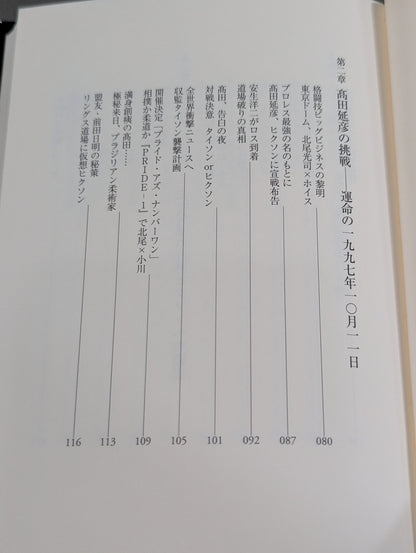 第二章 髙田延彦の挑戦――運命の一九九七年一〇月一一日
格闘技ビッグビジネスの黎明
東京ドーム、北尾光司×ホイス
080
プロレス最強の名のもとに
髙田延彦、ヒクソンに宣戦布告
087
安生洋二がロス到着
道場破りの真相
092
髙田、告白の夜
対戦決意 タイソン orヒクソン
101
全世界衝撃ニュースへ
収監タイソン襲撃計画
105
開催決定「プライド・アズ・ナンバーワン」
相撲か柔道か『PRIDE-1』で北尾×小川
109
満身創痍の髙田……
極秘来日、ブラジリアン柔術家
113
盟友・前田日明の秘策
リングス道場に仮想ヒクソン
116